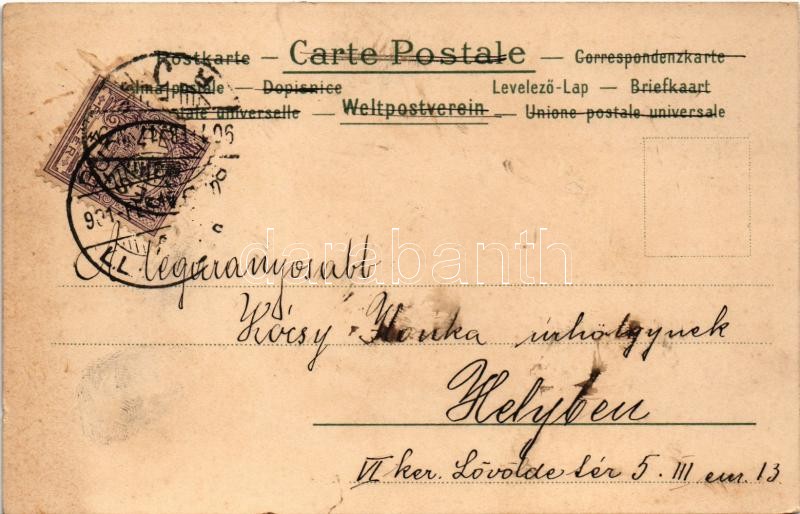 Postkarte — Carte Postale — Correspondenzkarte
postale — Dopisnice Levelező-Lap — Briefkaart
postale universelle — Weltpostverein — Unione postale universale
A legaranyosabb
Kócsy Ilonka úrhölgynek
Helyben
VI ker. Lövölde tér 5. III em. 13
darabanth